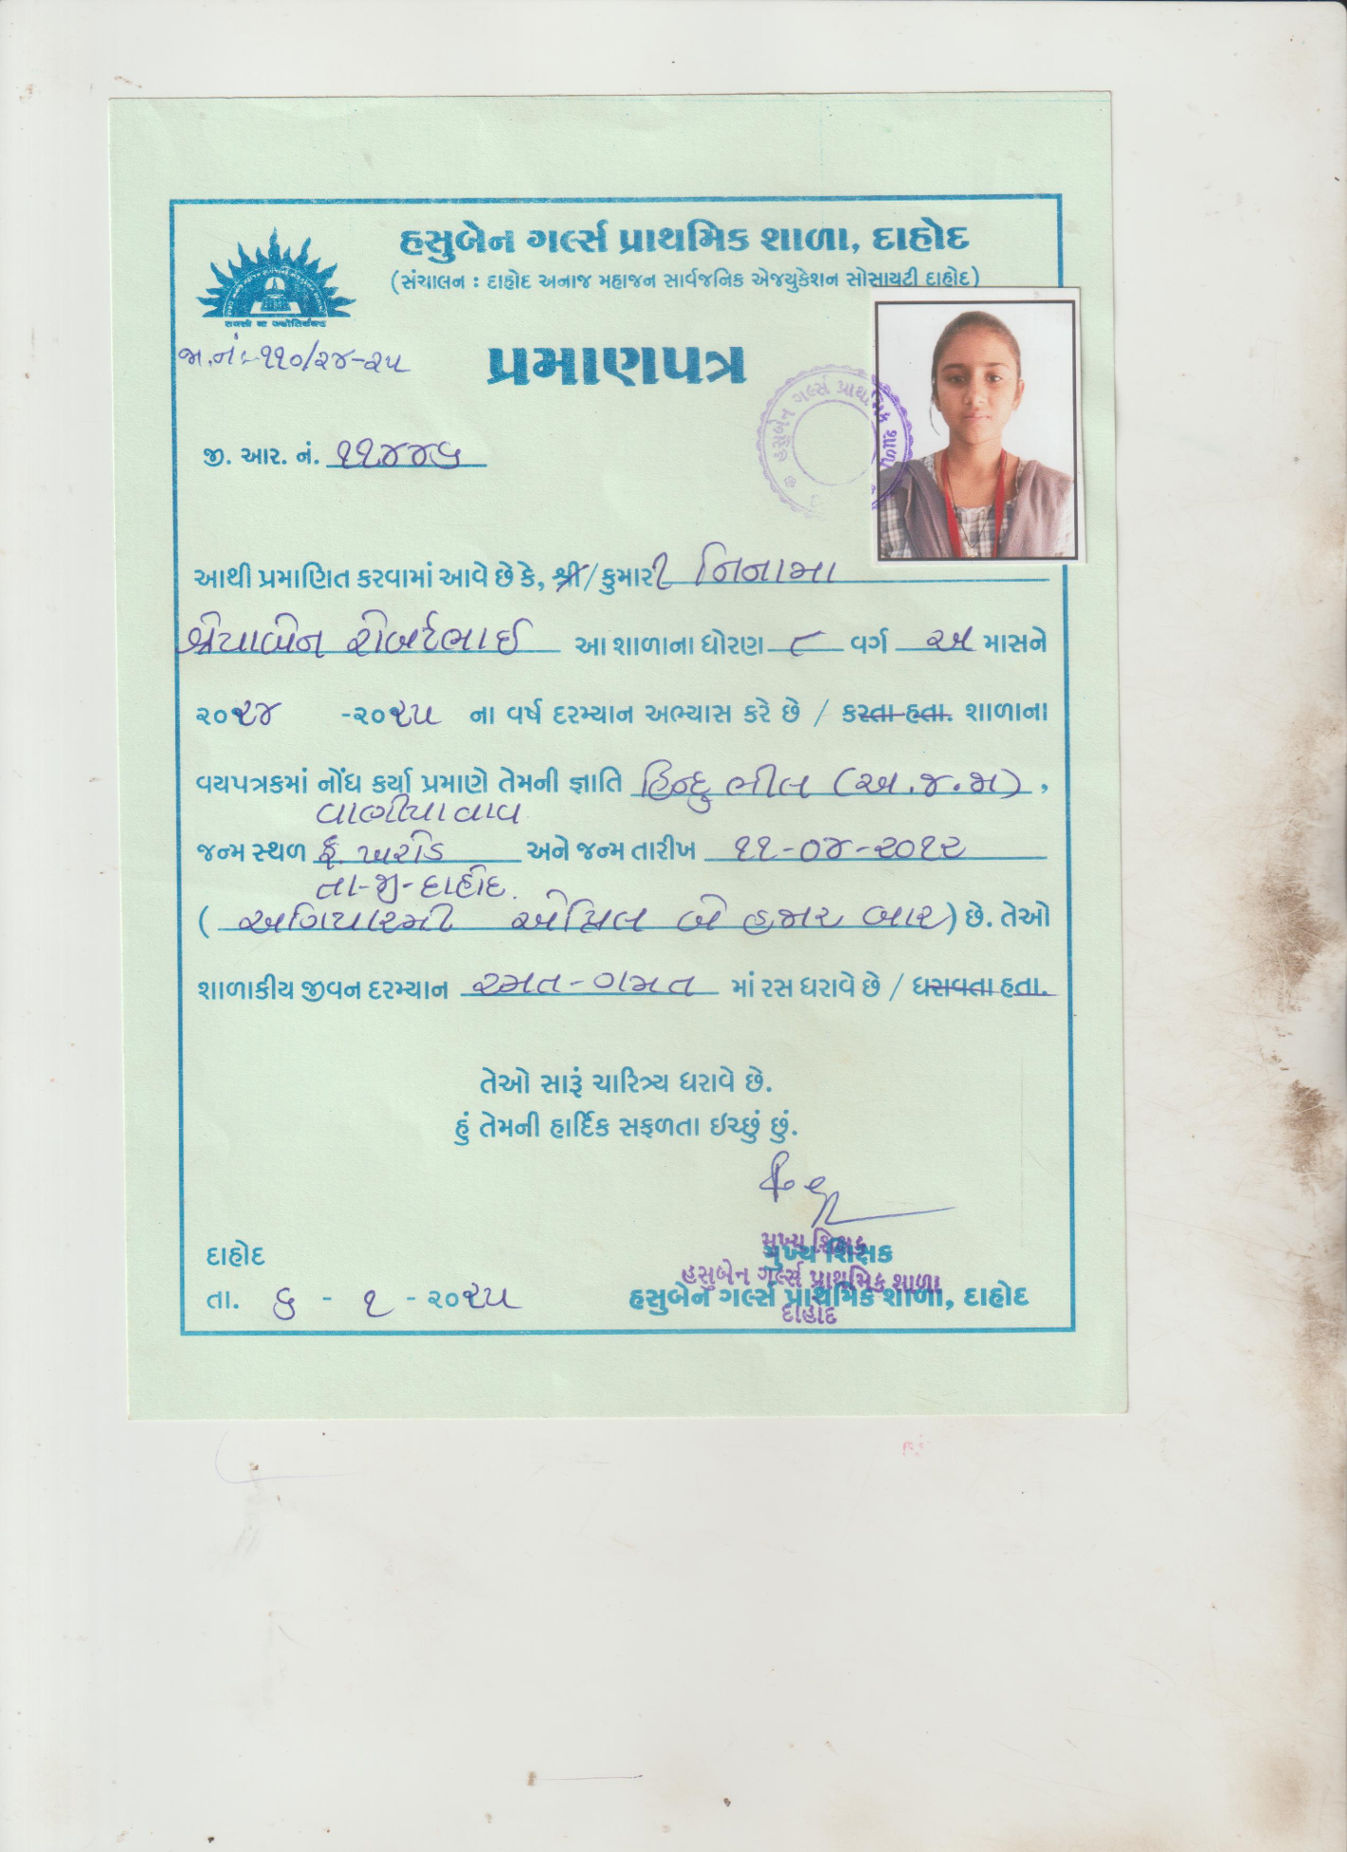 હસુબેન ગર્લ્સ પ્રાથમિક શાળા, દાહોદ
(સંચાલન : દાહોદ અનાજ મહાજન સાર્વજનિક એજ્યુકેશન સોસાયટી દાહોદ)
તમસો મા જ્યોતિર્ગમય
જા.નં.-૧૧૦/૨૪-૨૫
પ્રમાણપત્ર
હસુબેન ગર્લ્સ પ્રાથમિક શાળા
જી. આર. નં. ૧૧૪૪૬
આથી પ્રમાણિત કરવામાં આવે છે કે, શ્રી/કુમારી નિનામા
શ્રેયાબેન રોબર્ટભાઈ આ શાળાના ધોરણ ૮ વર્ગ અ માસને
૨૦૨૪ -૨૦૨૫ ના વર્ષ દરમ્યાન અભ્યાસ કરે છે / કરતા હતા. શાળાના
વયપત્રકમાં નોંધ કર્યા પ્રમાણે તેમની જ્ઞાતિ હિન્દુ ભીલ (અ.જ.જા),
વાણીયાવાવ
જન્મ સ્થળ ફ. ખરોડ અને જન્મ તારીખ ૧૧-૦૪-૨૦૧૨
તા-જી-દાહોદ.
( અગિયારમી એપ્રિલ બે હજાર બાર) છે. તેઓ
શાળાકીય જીવન દરમ્યાન રમત-ગમત માં રસ ધરાવે છે / ધરાવતા હતા.
તેઓ સારૂં ચારિત્ર્ય ધરાવે છે.
હું તેમની હાર્દિક સફળતા ઇચ્છું છું.
મુખ્ય શિક્ષક
હસુબેન ગર્લ્સ પ્રાથમિક શાળા
દાહોદ
દાહોદ
મુખ્ય શિક્ષક
તા. ૬ - ૧ - ૨૦૨૫
હસુબેન ગર્લ્સ પ્રાથમિક શાળા, દાહોદ